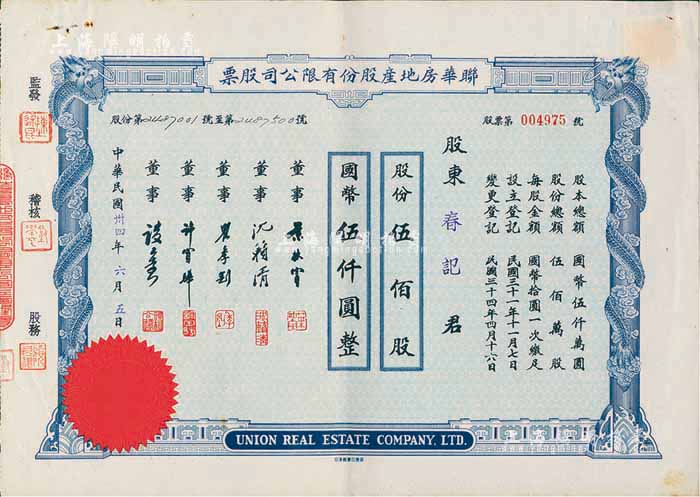 聯華房地產股份有限公司股票
股票第 004975 號
股份第2487001號至第2487500號
股本總額 國幣伍仟萬圓
股份總額 伍佰萬股
每股金額 國幣拾圓一次繳足
設立登記 民國三十一年十一月七日
變更登記 民國三十四年四月十六日
股東 春記 君
股份伍佰股
國幣伍仟圓整
董事
董事
董事
董事
董事
中華民國卅四年六月五日
監發
稽核
股務
UNION REAL ESTATE COMPANY, LTD.